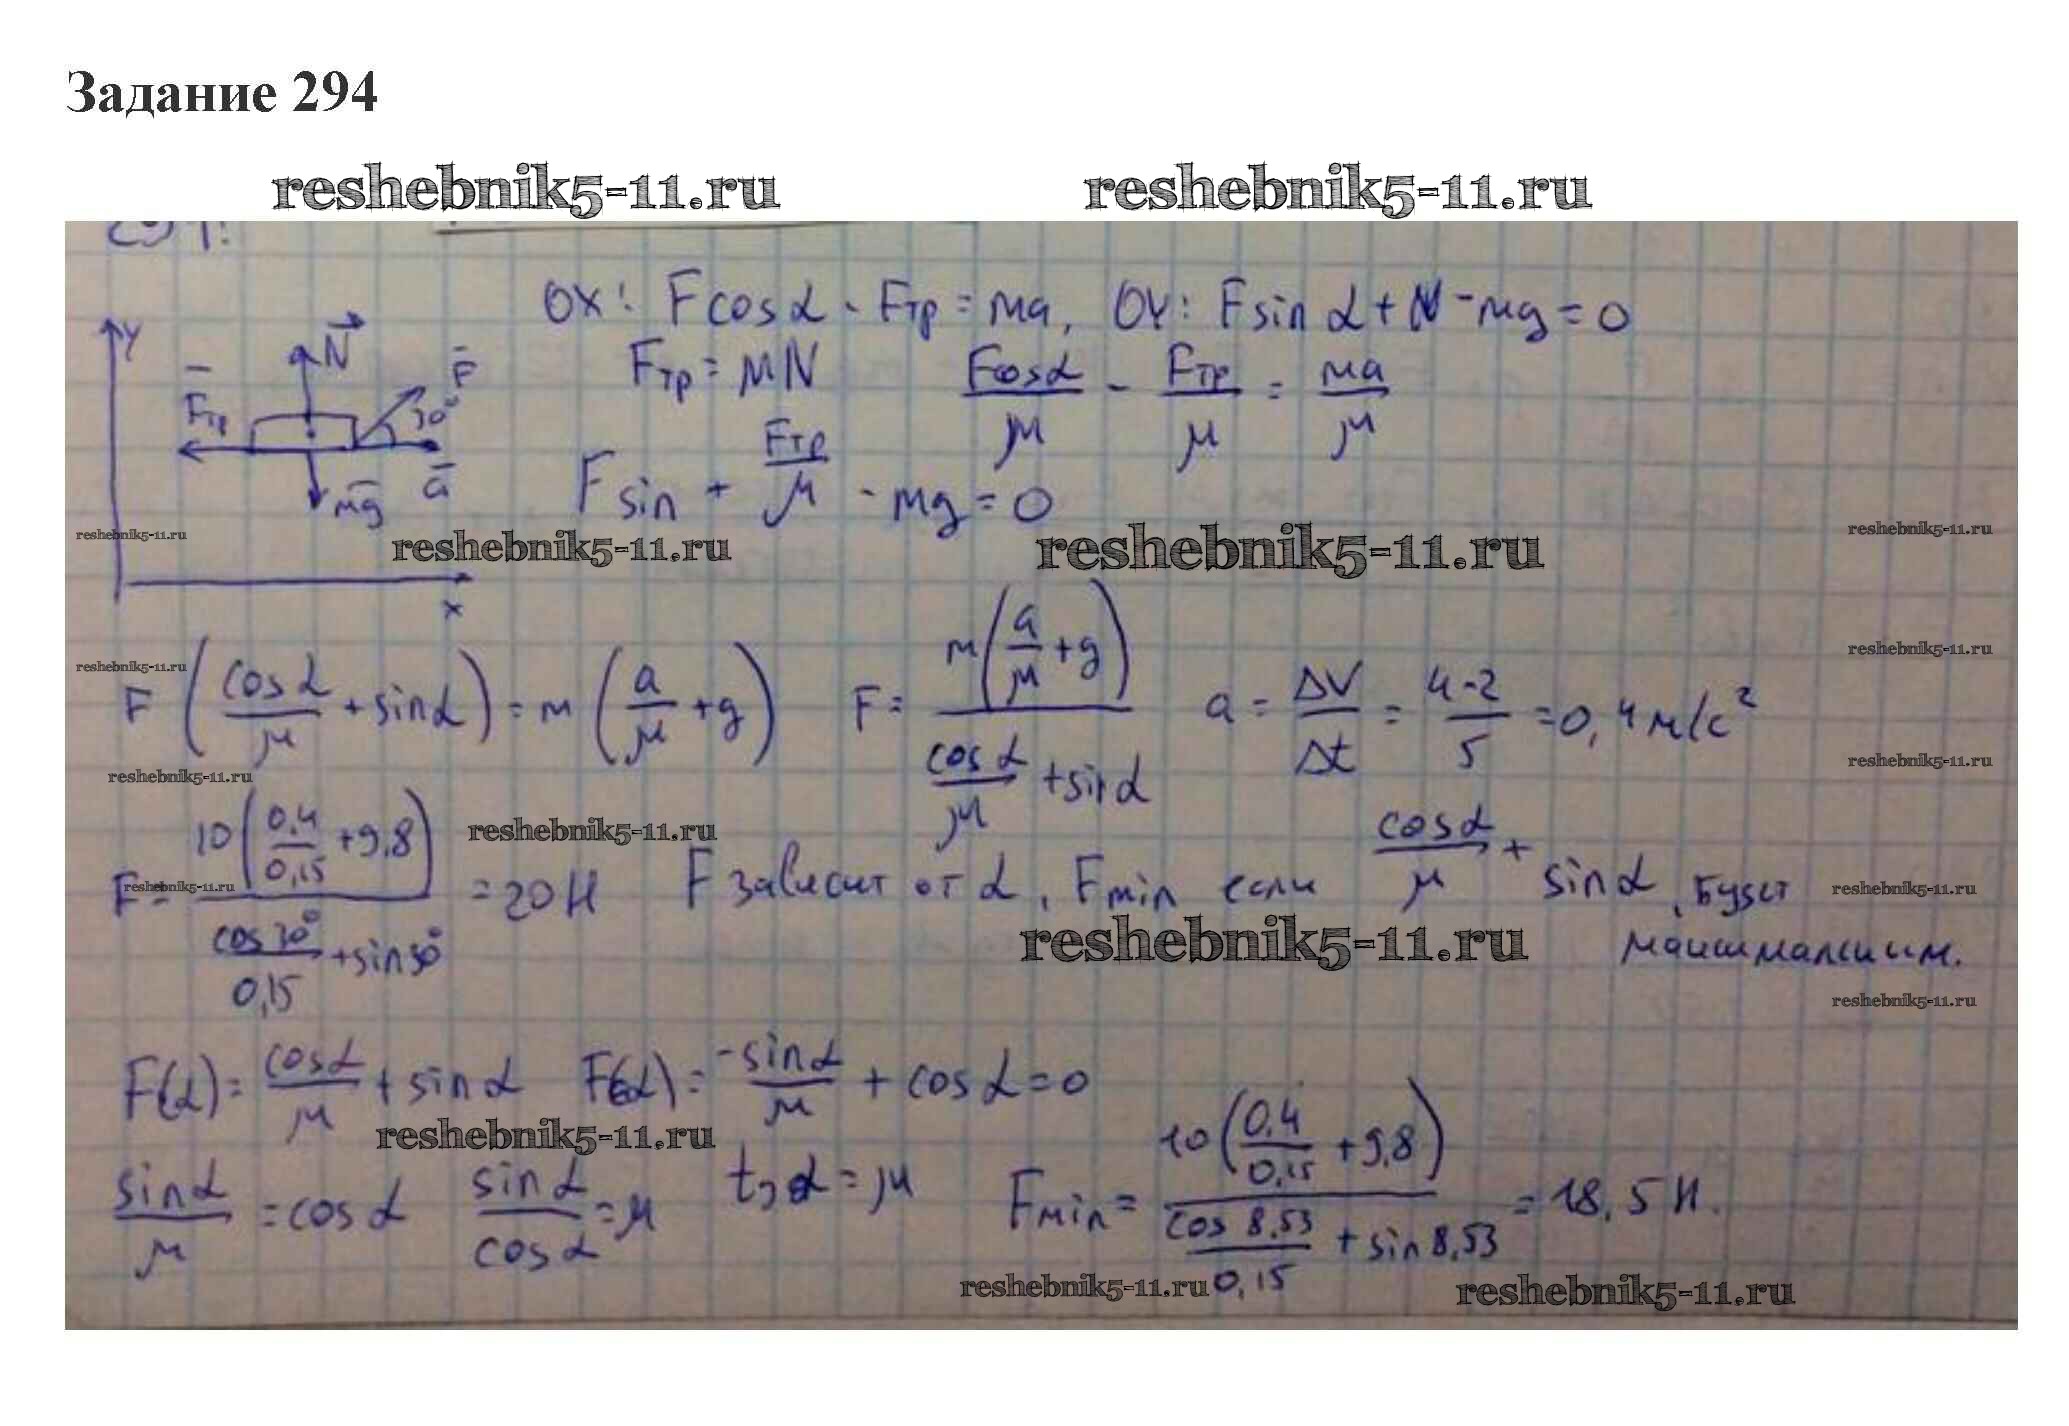 Задание 294
reshebnik5-11.ru reshebnik5-11.ru
294.
OX: F cos α - Fтр = ma, OY: F sin α + N - mg = 0
Y N F Fтр 30° a mg x
Fтр = μN F cos α / μ - Fтр / μ = ma / μ
F sin + Fтр / μ - mg = 0
reshebnik5-11.ru reshebnik5-11.ru reshebnik5-11.ru reshebnik5-11.ru
reshebnik5-11.ru reshebnik5-11.ru
F (cos α / μ + sin α) = m (a / μ + g) F = m (a / μ + g) / (cos α / μ + sin α) a = ΔV / Δt = 4-2 / 5 = 0,4 м/с²
reshebnik5-11.ru reshebnik5-11.ru
reshebnik5-11.ru
F = 10 (0,4 / 0,15 + 9,8) / (cos 30° / 0,15 + sin 30°) = 20 Н F зависит от α, Fmin если cos α / μ + sin α, будет
максимальным.
reshebnik5-11.ru reshebnik5-11.ru
reshebnik5-11.ru reshebnik5-11.ru
F(α) = cos α / μ + sin α F(α) = -sin α / μ + cos α = 0
reshebnik5-11.ru
sin α / μ = cos α sin α / cos α = μ tg α = μ Fmin = 10 (0,4 / 0,15 + 9,8) / (cos 8,53 / 0,15 + sin 8,53) = 18,5 Н.
reshebnik5-11.ru reshebnik5-11.ru